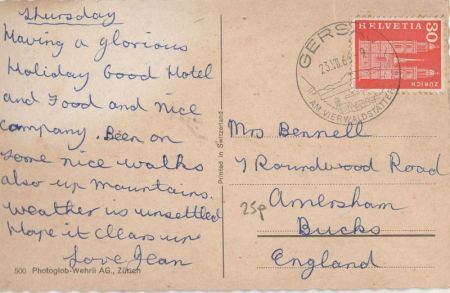 Thursday
Having a glorious
Holiday Good Hotel
and Food and nice
company. Been on
some nice walks
also up mountains.
Weather is unsettled
Hope it clears up
Love Jean
500 Photoglob-Wehrli AG., Zürich
Printed in Switzerland
GERSAU
23.VII.6
AM VIERWALDSTÄTTERSEE
HELVETIA
30
ZÜRICH
Mrs Bennell
7 Roundwood Road
Amersham
Bucks
England
25p